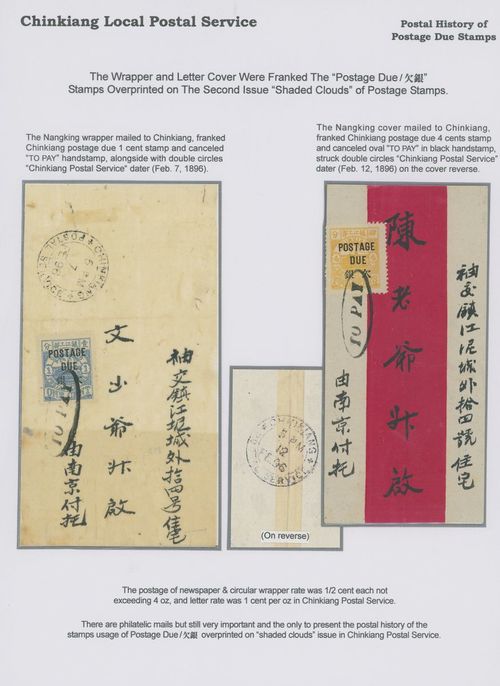 Chinkiang Local Postal Service
Postal History of
Postage Due Stamps
The Wrapper and Letter Cover Were Franked The “Postage Due/欠銀”
Stamps Overprinted on The Second Issue “Shaded Clouds” of Postage Stamps.
The Nangking wrapper mailed to Chinkiang, franked
Chinkiang postage due 1 cent stamp and canceled
"TO PAY" handstamp, alongside with double circles
"Chinkiang Postal Service" dater (Feb. 7, 1896).
The Nangking cover mailed to Chinkiang,
franked Chinkiang postage due 4 cents stamp
and canceled oval "TO PAY" in black handstamp,
struck double circles "Chinkiang Postal Service"
dater (Feb. 12, 1896) on the cover reverse.
CHINKIANG
POSTAL SERVICE
7
96
POSTAGE
DUE
TO PAY
袖交鎮江坭城外拾四号住宅
文少爺升啟
由南京付托
CHINKIANG
12
96
SERVICE
(On reverse)
POSTAGE
DUE
銀 欠
TO PAY
袖交鎮江坭城外拾四號住宅
陳老爺升啟
由南京付托
The postage of newspaper & circular wrapper rate was 1/2 cent each not
exceeding 4 oz, and letter rate was 1 cent per oz in Chinkiang Postal Service.
There are philatelic mails but still very important and the only to present the postal history of the
stamps usage of Postage Due/欠銀 overprinted on “shaded clouds” issue in Chinkiang Postal Service.